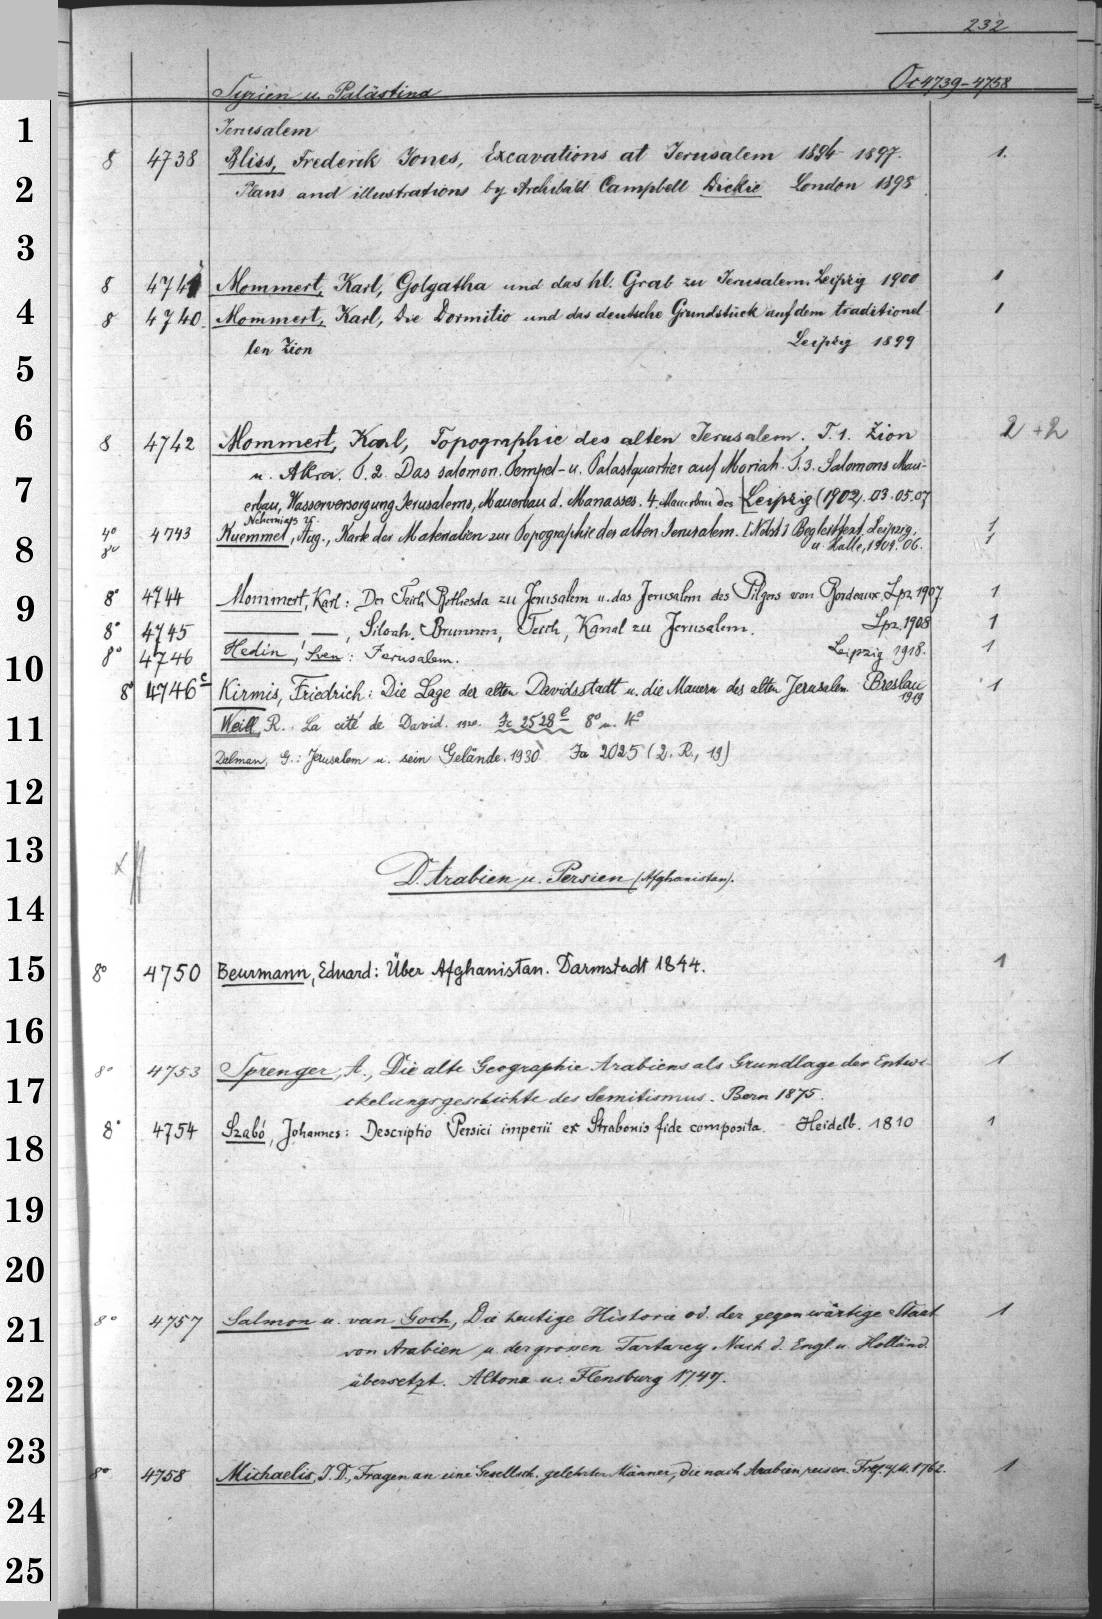 232
Syrien u. Palästina Oc 4739-4758
1
Jerusalem
8 4738 Bliss, Frederik Jones, Excavations at Jerusalem 1894-1897. 1.
2
Plans and illustrations by Archibald Campbell Dickie London 1898
3
8 4741 Mommert, Karl, Golgatha und das hl. Grab zu Jerusalem. Leipzig 1900 1
4
8 4740. Mommert, Karl, Die Dormitio und das deutsche Grundstück auf dem traditionel-
len Zion Leipzig 1899 1
5
6
8 4742 Mommert, Karl, Topographie des alten Jerusalem. T. 1. Zion 2 + 2
u. Akra. T. 2. Das salomon. Tempel- u. Palastquartier auf Moriah. T. 3. Salomons Mau-
7
erbau, Wasserversorgung Jerusalems, Mauerbau d. Manasses. 4. Mauerbau des Leipzig (1902). 03. 05. 07
Nehemias
4° 4743 Kuemmel, Aug., Karte der Materialien zur Topographie des alten Jerusalem. [Nebst] Begleittext. Leipzig, 1
8
8° u. Halle, 1904. 06. 1
9
8° 4744 Mommert, Karl: Der Teich Bethesda zu Jerusalem u. das Jerusalem des Pilgers von Bordeaux. Lpz. 1907 1
8° 4745 — —, Siloah. Brunnen, Teich, Kanal zu Jerusalem. Lpz. 1908 1
8° 4746 Hedin, Sven: Jerusalem. Leipzig 1918. 1
10
8° 4746c Kirmis, Friedrich: Die Lage der alten Davidsstadt u. die Mauern des alten Jerusalem. Breslau 1
1919
11
Weill, R.. La cité de David. 1920. Fc 2528e 8° u. 4°
Dalman, G.: Jerusalem u. sein Gelände. 1930 Fa 2025 (2. R., 19)
12
13
D. Arabien u. Persien (Afghanistan).
14
15
8° 4750 Beurmann, Eduard: Über Afghanistan. Darmstadt 1844. 1
16
8° 4753 Sprenger, A., Die alte Geographie Arabiens als Grundlage der Entwi- 1
17
ckelungsgeschichte des Semitismus. Bern 1875.
8° 4754 Szabó, Johannes: Descriptio Persici imperii ex Strabonis fide composita. Heidelb. 1810 1
18
19
20
8° 4757 Salmon u. van Goch, Die heutige Historie od. der gegenwärtige Staat 1
21
von Arabien u. der grosen Tartarey. Nach d. Engl. u. Holländ.
22
übersetzt. Altona u. Flensburg 1747.
23
8° 4758 Michaelis, J. D., Fragen an eine Gesellsch. gelehrter Männer, die nach Arabien reisen. 1762. 1
24
25